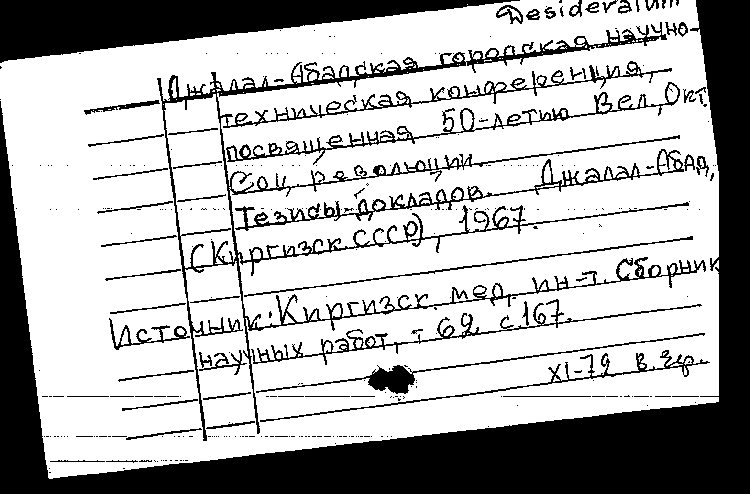 Desideratum
Джалал-Абадская городская научно-
техническая конференция,
посвященная 50-летию Вел. Окт.
Соц. революции.
Тезисы докладов. Джалал-Абад,
(Киргизск. ССР), 1967.
Источник: Киргизск. мед. ин-т. Сборник
научных работ, т 62. с. 167.
XI-72 в.